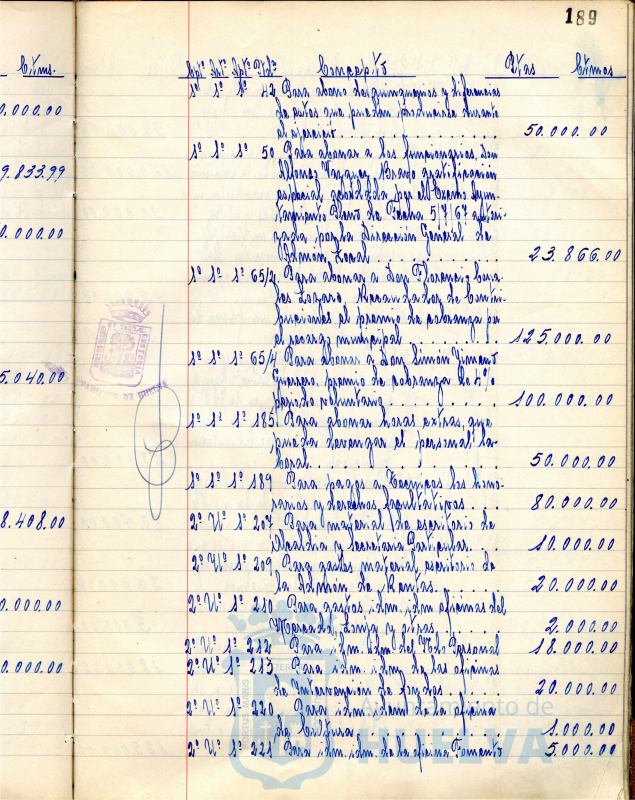 189
Ctms. Cptº Artº Cptº Ptdª Concepto Ptas Ctmos
1º 1º 1º 42 Para abono de quinquenios y diferencias
0.000.00 de estos que puedan producirse durante
el ejercicio . . . . . . . . . . . . 50.000.00
1º 1º 1º 50 Para abonar a los funcionarios, Don
9.833.99 Alfonso Vazquez Bravo gratificación
especial acordada por el Excmo Ayun-
tamiento Pleno de Fecha 5/7/67 autori-
0.000.00 zada por la Dirección General de
Admon Local . . . . . . . . . 23.866.00
1º 1º 1º 65/2 Para abonar a Don Florencio
Lozano, Recaudador de Contri-
buciones el premio de cobranza por
el recargo municipal . . . . . . . 125.000.00
1º 1º 1º 65/4 Para abonar a Don Simón Gimeno
5.040.00 Guerrero premio de cobranza de 2%
periodo voluntario . . . . . . . . 100.000.00
1º 1º 1º 185 Para abonar horas extras, que
pueda devengar el personal la-
boral . . . . . . . . . . . 50.000.00
1º 1º 1º 189 Para pagos a Tecnicos los hono-
rarios y derechos facultativos . . . 80.000.00
8.408.00 2º Uº 1º 207 Para material de escritorio de
Alcaldia y Secretaria Particular . . . 10.000.00
2º Uº 1º 209 Para gastos material escritorio de
la Admón de Rentas . . . . . . 20.000.00
0.000.00 2º Uº 1º 210 Para gastos idm. idm oficinas del
Mercado, Lonja y otras . . . . . 2.000.00
2º Uº 1º 212 Para idm. idm. del Ndo Personal 18.000.00
0.000.00 2º Uº 1º 213 Para idm. idm de las oficinas
de Intervención de fondos . . . . 20.000.00
2º Uº 1º 220 Para idm idem de la oficina
de Cultura . . . . . . . . . 1.000.00
2º Uº 1º 221 Para idm. idm. de la oficina Fomento 5.000.00
Ayuntamiento de
HUELVA